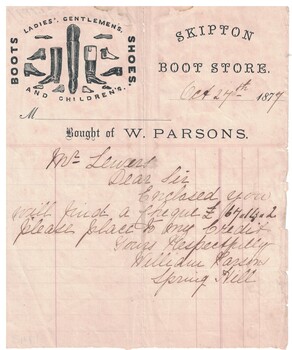 LADIES', GENTLEMEN'S,
BOOTS
SHOES.
AND CHILDREN'S.
SKIPTON
BOOT STORE.
Oct 27th 1877
M
Bought of W. PARSONS.
Mr
Dear Sir
Enclosed you
will find a Cheque £
please place to my Credit
Yours Respectfully
William Parsons
Spring Hill